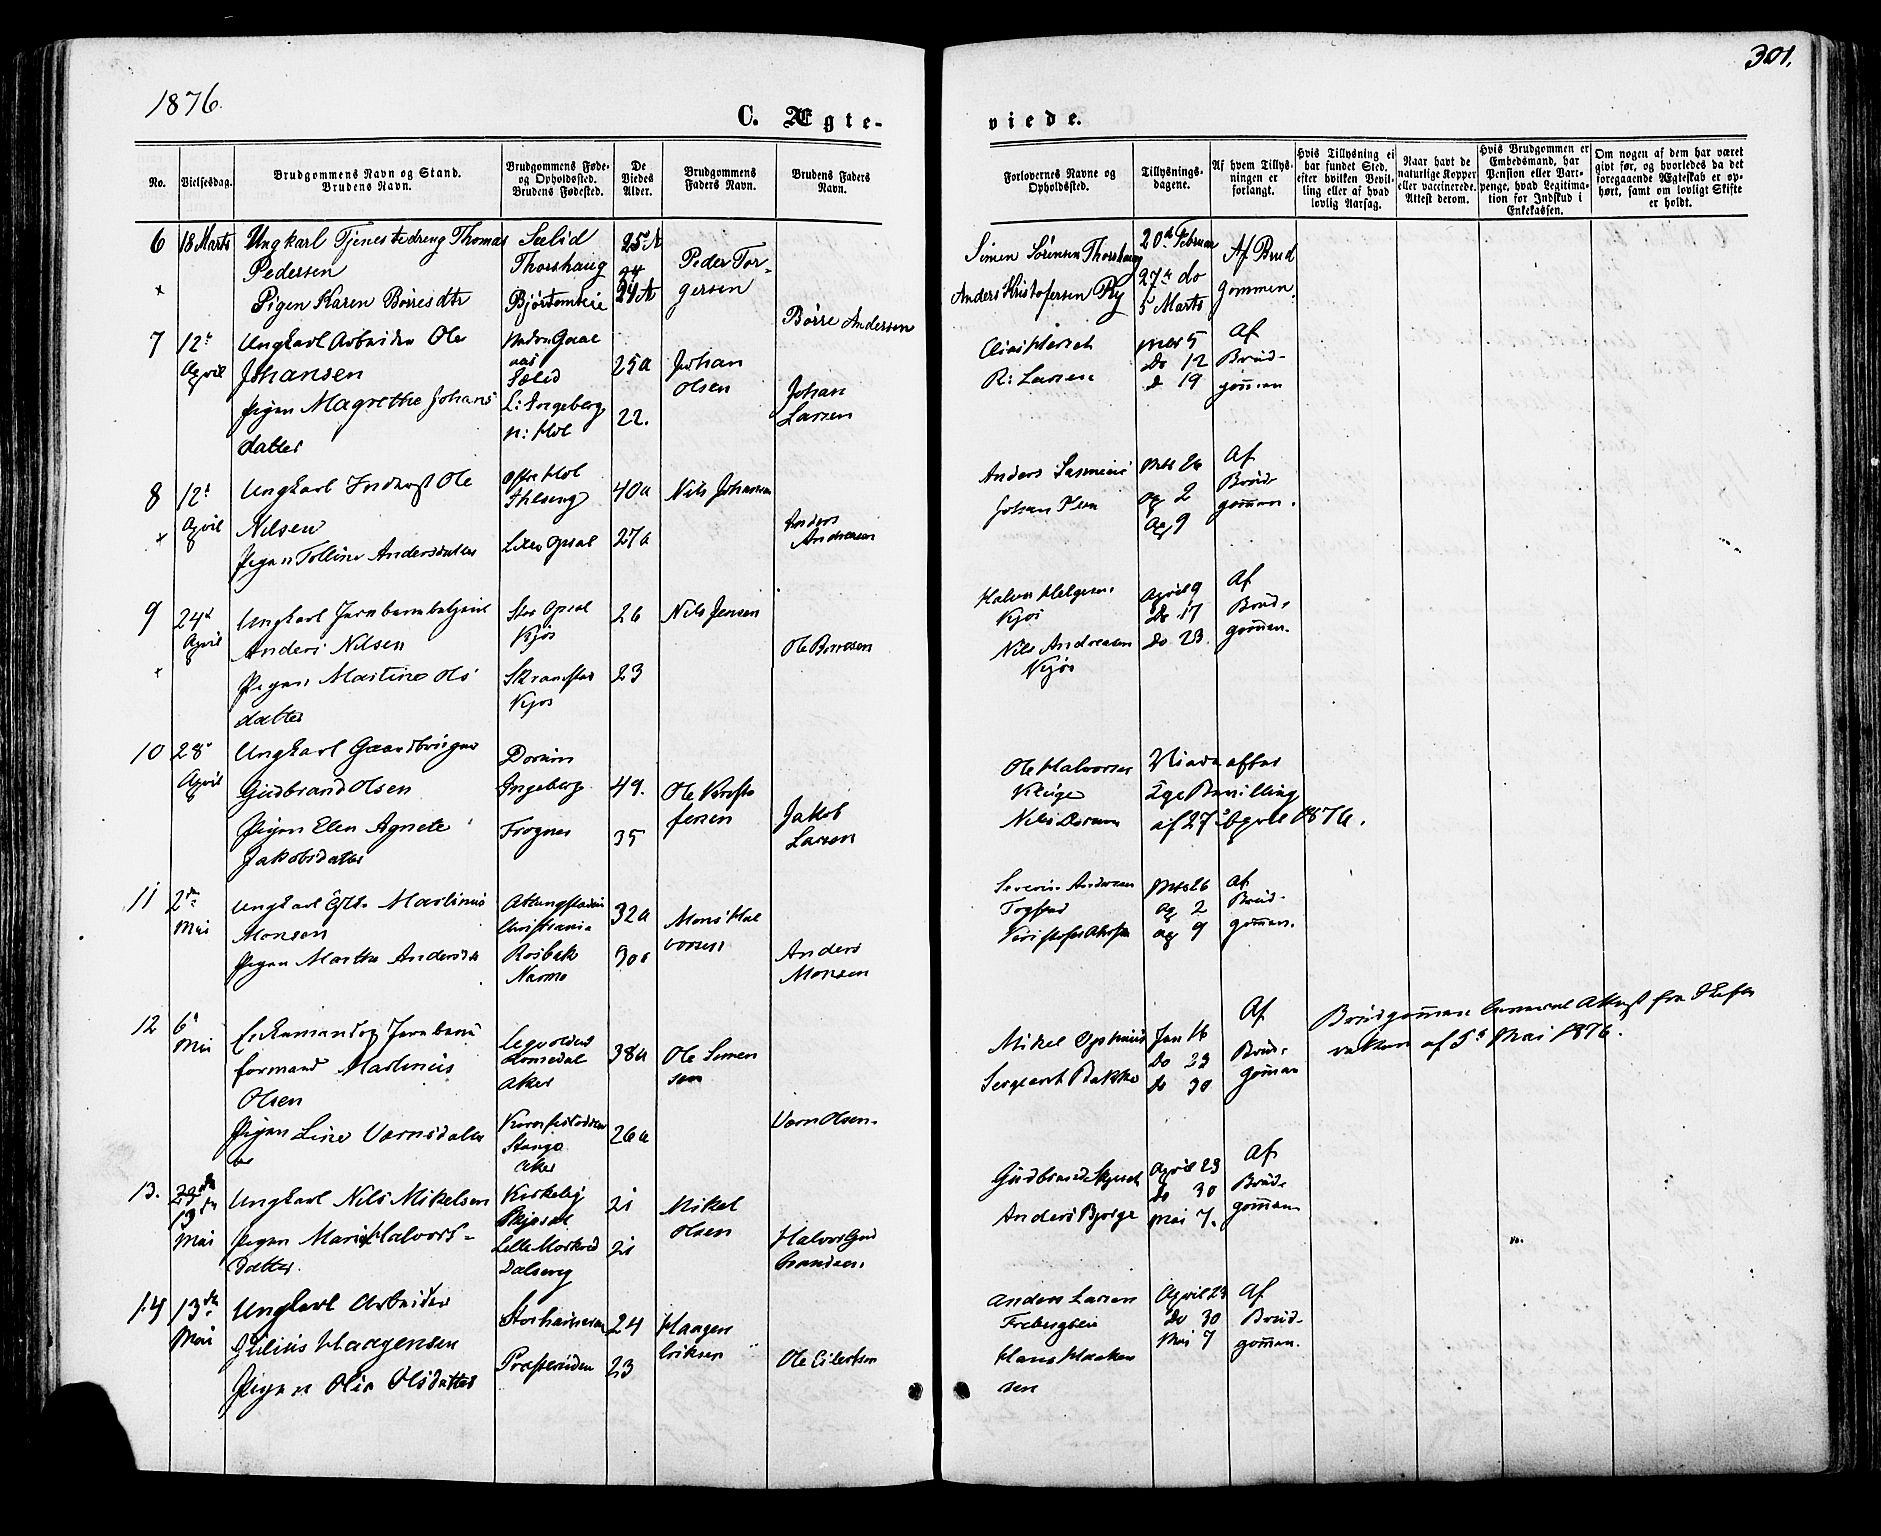 1876.
301.
C. Ægte-
viede.
No.
Vielsesdag.
Brudgommens Navn og Stand.
Brudens Navn.
Brudgommens Føde-
og Opholdsted.
Brudens Fødested.
De
Viedes
Alder.
Brudgommens
Faders Navn.
Brudens Faders
Navn.
Forlovernes Navne og
Opholdssted.
Tillysnings-
dagene.
Af hvem Tillys-
ningen er
forlangt.
Hvis Tillysning ei
har fundet Sted,
efter hvilken Bevil-
ling eller af hvad
lovlig Aarsag.
Naar havt de
naturlige Kopper
eller vaccinerede.
Attest derom.
Hvis Brudgommen er
Embedsmand, har
Pension eller Vart-
penge, hvad Legitima-
tion for Indskud i
Enkekassen.
Om nogen af dem har været
givt før, og hvorledes da det
foregaaende Ægteskab er op-
hørt, samt om lovligt Skifte
er holdt.
6 18 Marts Ungkarl Tjenestedreng Thomas
Pedersen
Pigen Karen Børresdtr
Sælid
Thorshaug
25 A
24 A
Peder Tor-
gersen
Børre Andersen
Simen Sørensen Thorshaug
Anders Kristofersen Ry
20d Februar
27d do
5 Marts
Af Brud
gommen.
7 12t
April
Ungkarl Arbeider Ole
Johansen
Pigen Magrethe Johans
datter
Sælid
L: Ingeberg
n: Hol
25a
22.
Johan
Olsen
Johan
Larsen
R: Larsen
Mts 5
Do 12
d 19
Af
Brud-
gomman
8 12t
April
Ungkarl Inderst Ole
Nilsen
Pigen Tolline Andersdatter
Østre Hol
Lille Opsal
40a
27a
Nils Johansen
Anders
Andresen
Anders
Johan
Mts 26
Ap 2
Ap 9
Af
Brud
gomman.
9 24d
April
Ungkarl
Anders Nilsen
Pigen Martine Ols
datter
Store Opsal
Kjøs
Skramstad
Kjos
26
23
Nils Jensen
Ole Børresen
Halvor Helgesen
Kjøs
Nils Andresen
Kjøs
April 9
Do 17
Do 23.
Af
Brud-
gomman.
10 28d
April
Ungkarl Gaardbruger
Gudbrand Olsen
Pigen Elen Agnete
Jakobsdatter
Dorum
Ingeberg
Frogner
49.
35
Ole Kristo
fersen
Jakob
Larsen
Ole Halvorsen
Nils Dorum
Viede efter
Kgl Bevilling
af 27d April 1876.
11 2den
Mai
Ungkarl Martinus
Monsen
Pigen Marthe Andersdtr
Christiania
Rosbak
32a
30a
Mons Hal
vorsen
Anders
Monsen
Severin Andersen
Togstad
Mts 26
Ap 2
Ap 9
Af
Brud-
gomman.
12 6t
Mai
Enkemand og Jernbane
formand Martinus
Olsen
Pigen Line Værnsdatter
Romedal
Aker
Stange
Aker
38a
26a
Ole Simen
sen
Værn Olsen.
Mikel
Sergeant Bakke
Jan 16
Do 23
Do 30
Af
Brud-
gomman
af 5t Mai 1876.
13. 13den
Mai
Ungkarl Nils Mikelsen
Pigen Marie Halvors-
datter.
Kirkeby
Dalseng
21
21
Mikel
Olsen
Halvor Gud
brandsen.
Anders Bjørge
April 23
Do 30
Mai 7.
Af
Brud-
gomman
14 13den
Mai
Ungkarl Arbeider
Julius Haagensen
Pigen Olia Olsdatter
24
23
Haagen
Eriksen
Ole Eilertsen
Anders Larsen
Frebergseie
Hans Haaken
sen
April 23
Do 30
Mai 7
Af
Brud-
gomman.